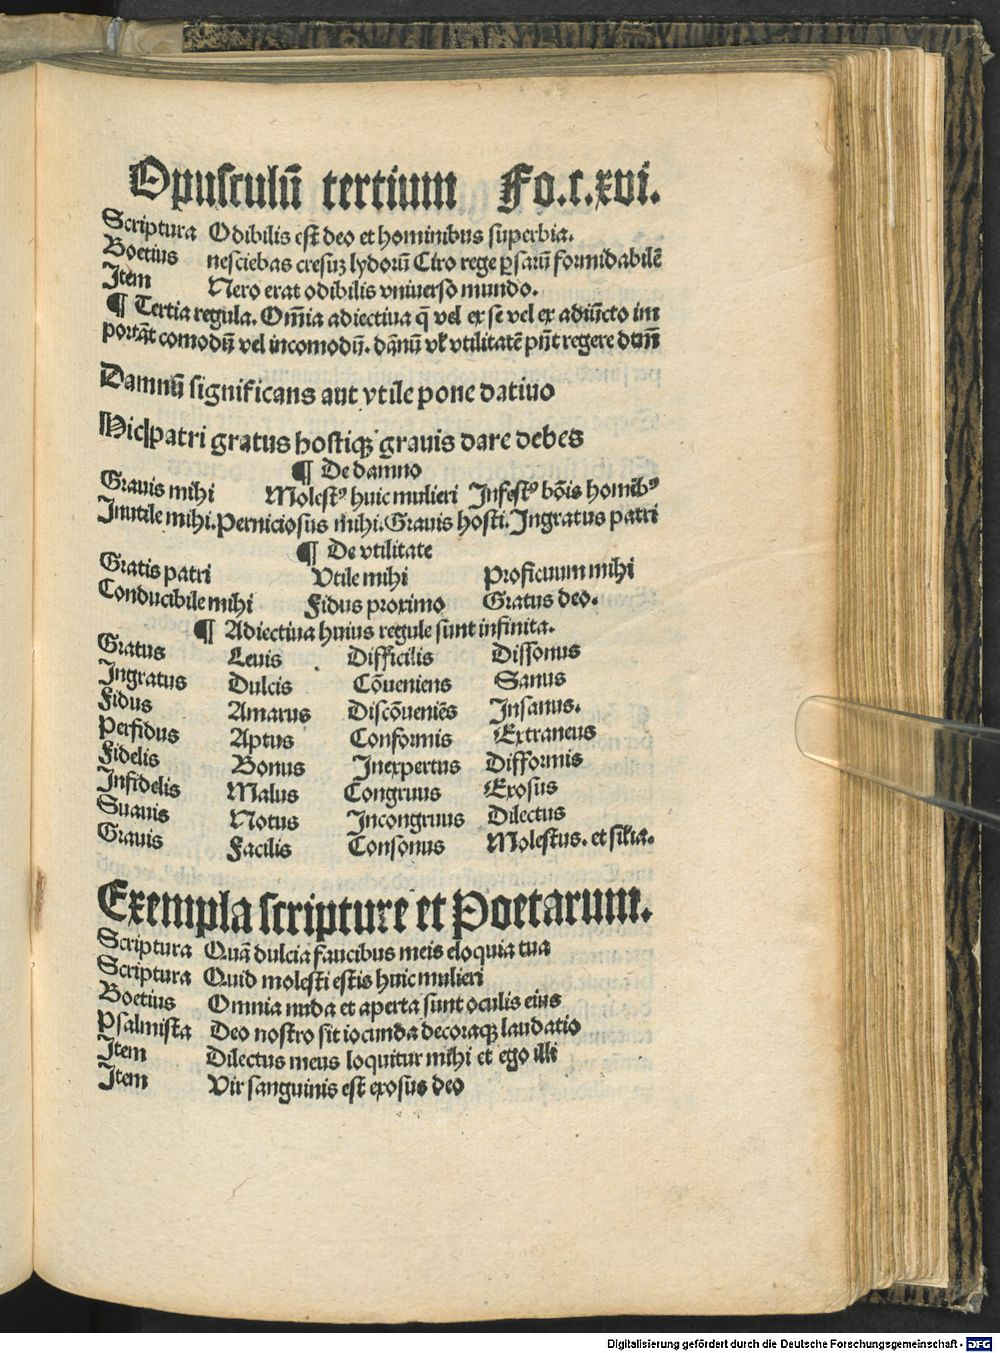 Opusculū tertium Fo.c.xvi.
Scriptura Odibilis est deo et hominibus superbia.
Boetius nesciebas cresuꝫ lydorū Ciro rege ꝑsarū formidabilē
Item Nero erat odibilis vniuerso mundo.
¶ Tertia regula. Om̄ia adiectiua q̄ vel ex se vel ex adiūcto im
portāt comodū vel incomodū. dānū vꝉ vtilitatē pn̄t regere dtm̄
Damnū significans aut vtile pone datiuo
Hic patri gratus hostiqꝫ grauis dare debes
¶ De damno
Grauis mihi Molestꝰ huic mulieri Infestꝰ bōis homībꝰ
Inutile mihi. Perniciosus mihi. Grauis hosti. Ingratus patri
¶ De vtilitate
Gratis patri Vtile mihi Proficuum mihi
Conducibile mihi Fidus proximo Gratus deo.
¶ Adiectiua huius regule sunt infinita.
Gratus Leuis Difficilis Dissonus
Ingratus Dulcis Cōueniens Sanus
Fidus Amarus Discōueniēs Insanus.
Perfidus Aptus Conformis Extraneus
Fidelis Bonus Inexpertus Difformis
Infidelis Malus Congruus Exosus
Suauis Notus Incongruus Dilectus
Grauis Facilis Consonus Molestus. et silia.
Exempla scripture et Poetarum.
Scriptura Quā dulcia faucibus meis eloquia tua
Scriptura Quid molesti estis huic mulieri
Boetius Omnia nuda et aperta sunt oculis eius
Psalmista Deo nostro sit iocunda decoraqꝫ laudatio
Item Dilectus meus loquitur mihi et ego illi
Item Vir sanguinis est exosus deo
Digitalisierung gefördert durch die Deutsche Forschungsgemeinschaft - DFG